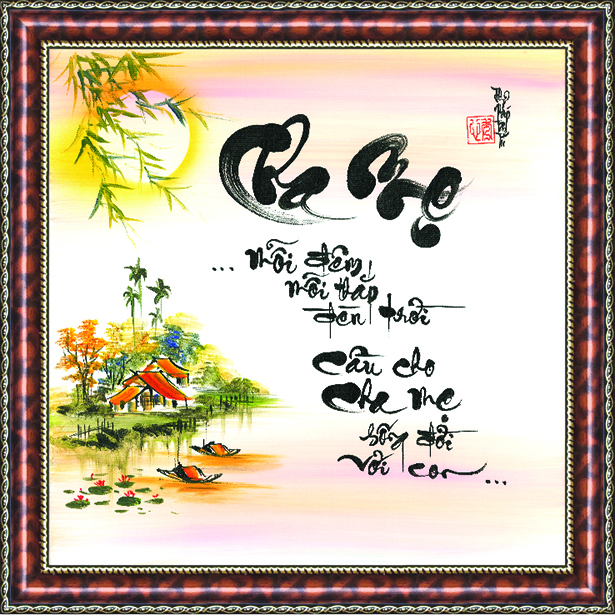 Cha Mẹ
... Mỗi đêm
mỗi thắp
đèn trời
Cầu cho
Cha mẹ
sống đời
với con ...